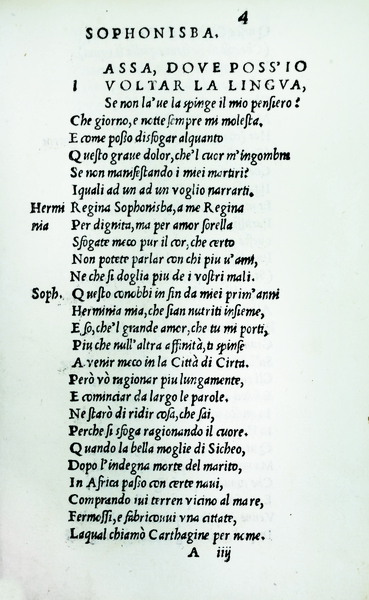 4
SOPHONISBA.
ASSA, DOVE POSS'IO
l VOLTAR LA LINGVA,
Se non la'ue la spinge il mio pensiero?
Che giorno, e notte sempre mi molesta.
E come posso disfogar alquanto
Questo graue dolor, che'l cuor m'ingombra
Se non manifestando i miei martiri?
I quali ad un ad un voglio narrarti.
Hermi Regina Sophonisba, a me Regina
nia Per dignita, ma per amor sorella
Sfogate meco pur il cor, che certo
Non potete parlar con chi piu u'ami,
Ne che si doglia piu de i vostri mali.
Soph. Questo conobbi in fin da miei prim'anni
Herminia mia, che sian nutriti insieme,
E so, che'l grande amor, che tu mi porti,
Piu che null'altra affinità, ti spinse
A venir meco in la Città di Cirta.
Però vò ragionar piu lungamente,
E cominciar da largo le parole.
Ne starò di ridir cosa, che sai,
Perche si sfoga ragionando il cuore.
Quando la bella moglie di Sicheo,
Dopo l'indegna morte del marito,
In Africa passò con certe naui,
Comprando iui terren vicino al mare,
Fermossi, e fabricouui vna cittate,
Laqual chiamò Carthagine per nome.
A iiij